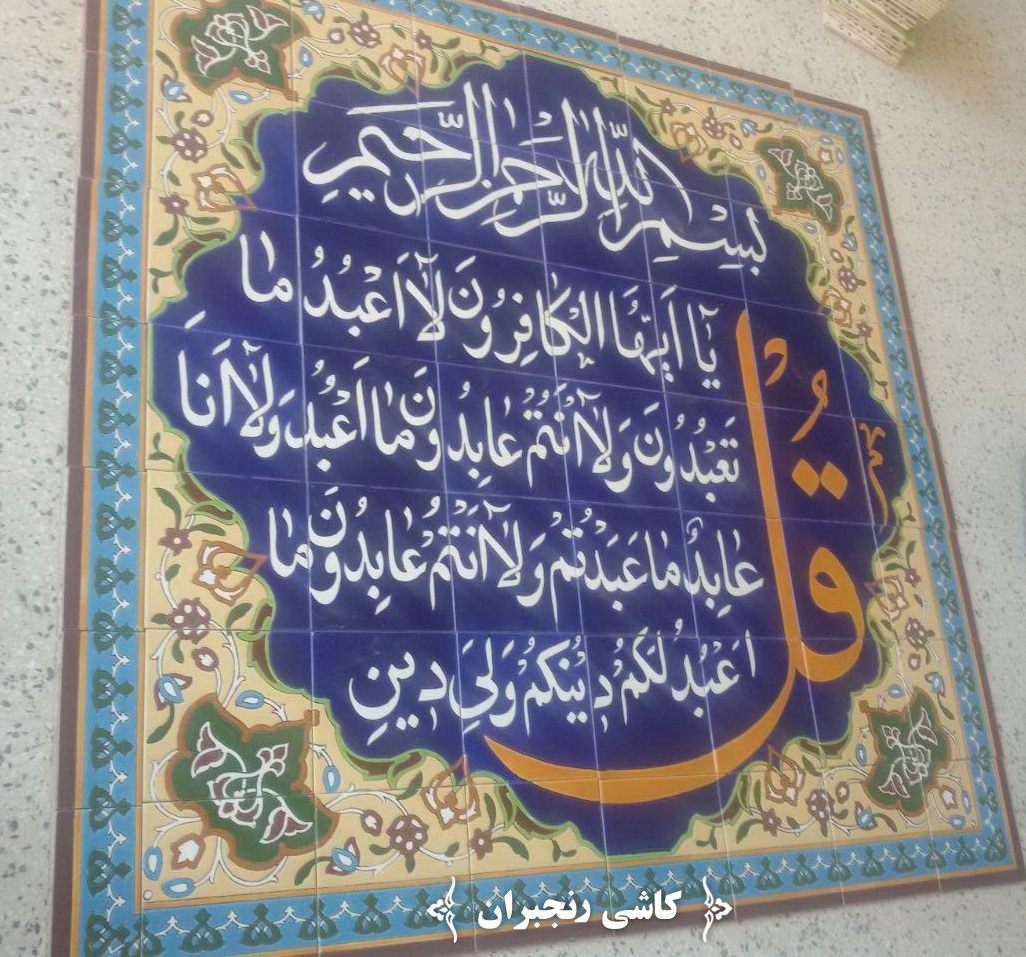 بِسْمِ اللّٰهِ الرَّحْمٰنِ الرَّحيمِ
قُلْ
يٰٓا اَيُّهَا الْكافِرُونَ لٰٓا اَعْبُدُ ما
تَعْبُدُونَ وَلٰٓا اَنْتُمْ عابِدُونَ ما اَعْبُدُ وَلٰٓا اَنَا
عابِدٌ ما عَبَدْتُمْ وَلٰٓا اَنْتُمْ عابِدُونَ ما
اَعْبُدُ لَكُمْ دينُكُمْ وَلِيَ دينِ
کاشی رنجبران